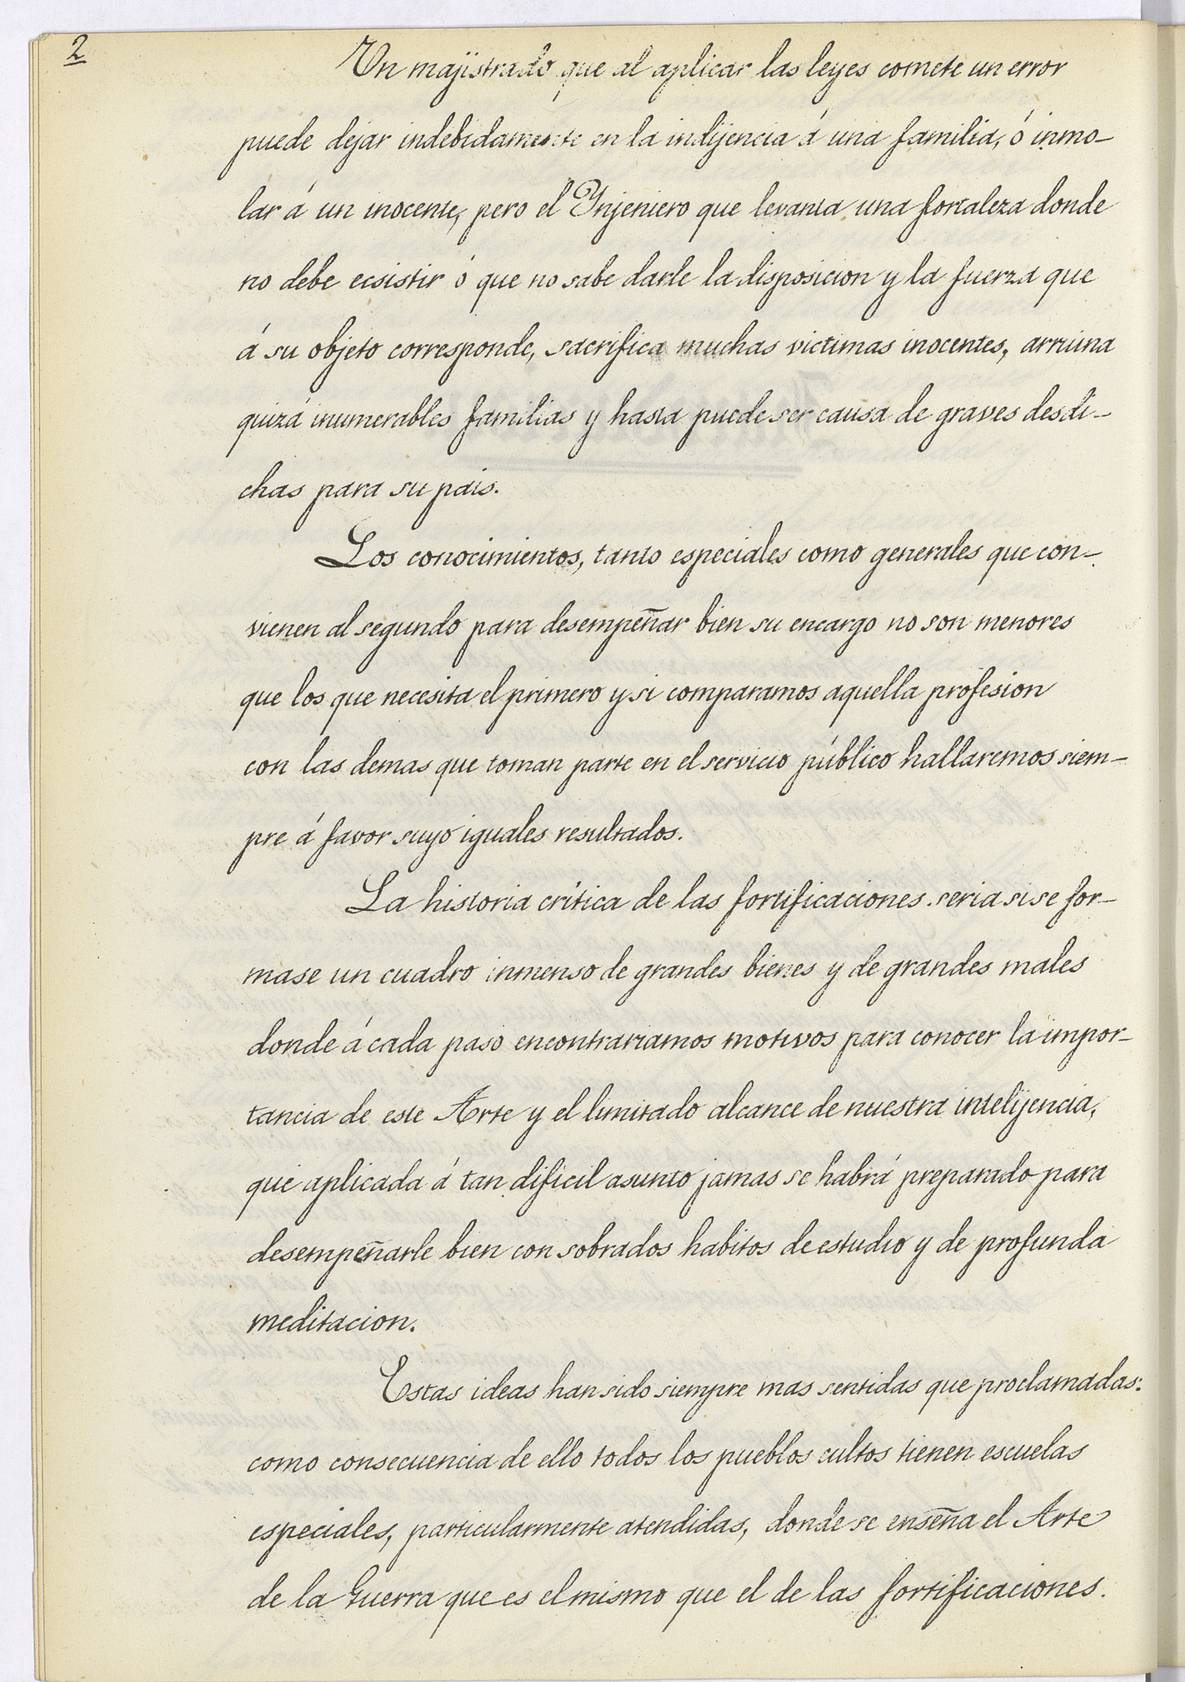 2
Un majistrado que al aplicar las leyes comete un error
puede dejar indebidamente en la indijencia á una familia, ó inmo-
lar á un inocente, pero el Ynjeniero que levanta una fortaleza donde
no debe ecsistir ó que no sabe darle la disposicion y la fuerza que
á su objeto corresponde, sacrifica muchas victimas inocentes, arruina
quizá inumerables familias y hasta puede ser causa de graves desdi-
chas para su pais.
Los conocimientos, tanto especiales como generales que con-
vienen al segundo para desempeñar bien su encargo no son menores
que los que necesita el primero y si comparamos aquella profesion
con las demas que toman parte en el servicio público hallaremos siem-
pre á favor suyo iguales resultados.
La historia crítica de las fortificaciones seria si se for-
mase un cuadro inmenso de grandes bienes y de grandes males
donde á cada paso encontrariamos motivos para conocer la impor-
tancia de este Arte y el limitado alcance de nuestra intelijencia,
que aplicada á tan dificil asunto jamas se habrá preparado para
desempeñarle bien con sobrados habitos de estudio y de profunda
meditacion.
Estas ideas han sido siempre mas sentidas que proclamadas:
como consecuencia de ello todos los pueblos cultos tienen escuelas
especiales, particularmente atendidas, donde se enseña el Arte
de la Guerra que es el mismo que el de las fortificaciones.